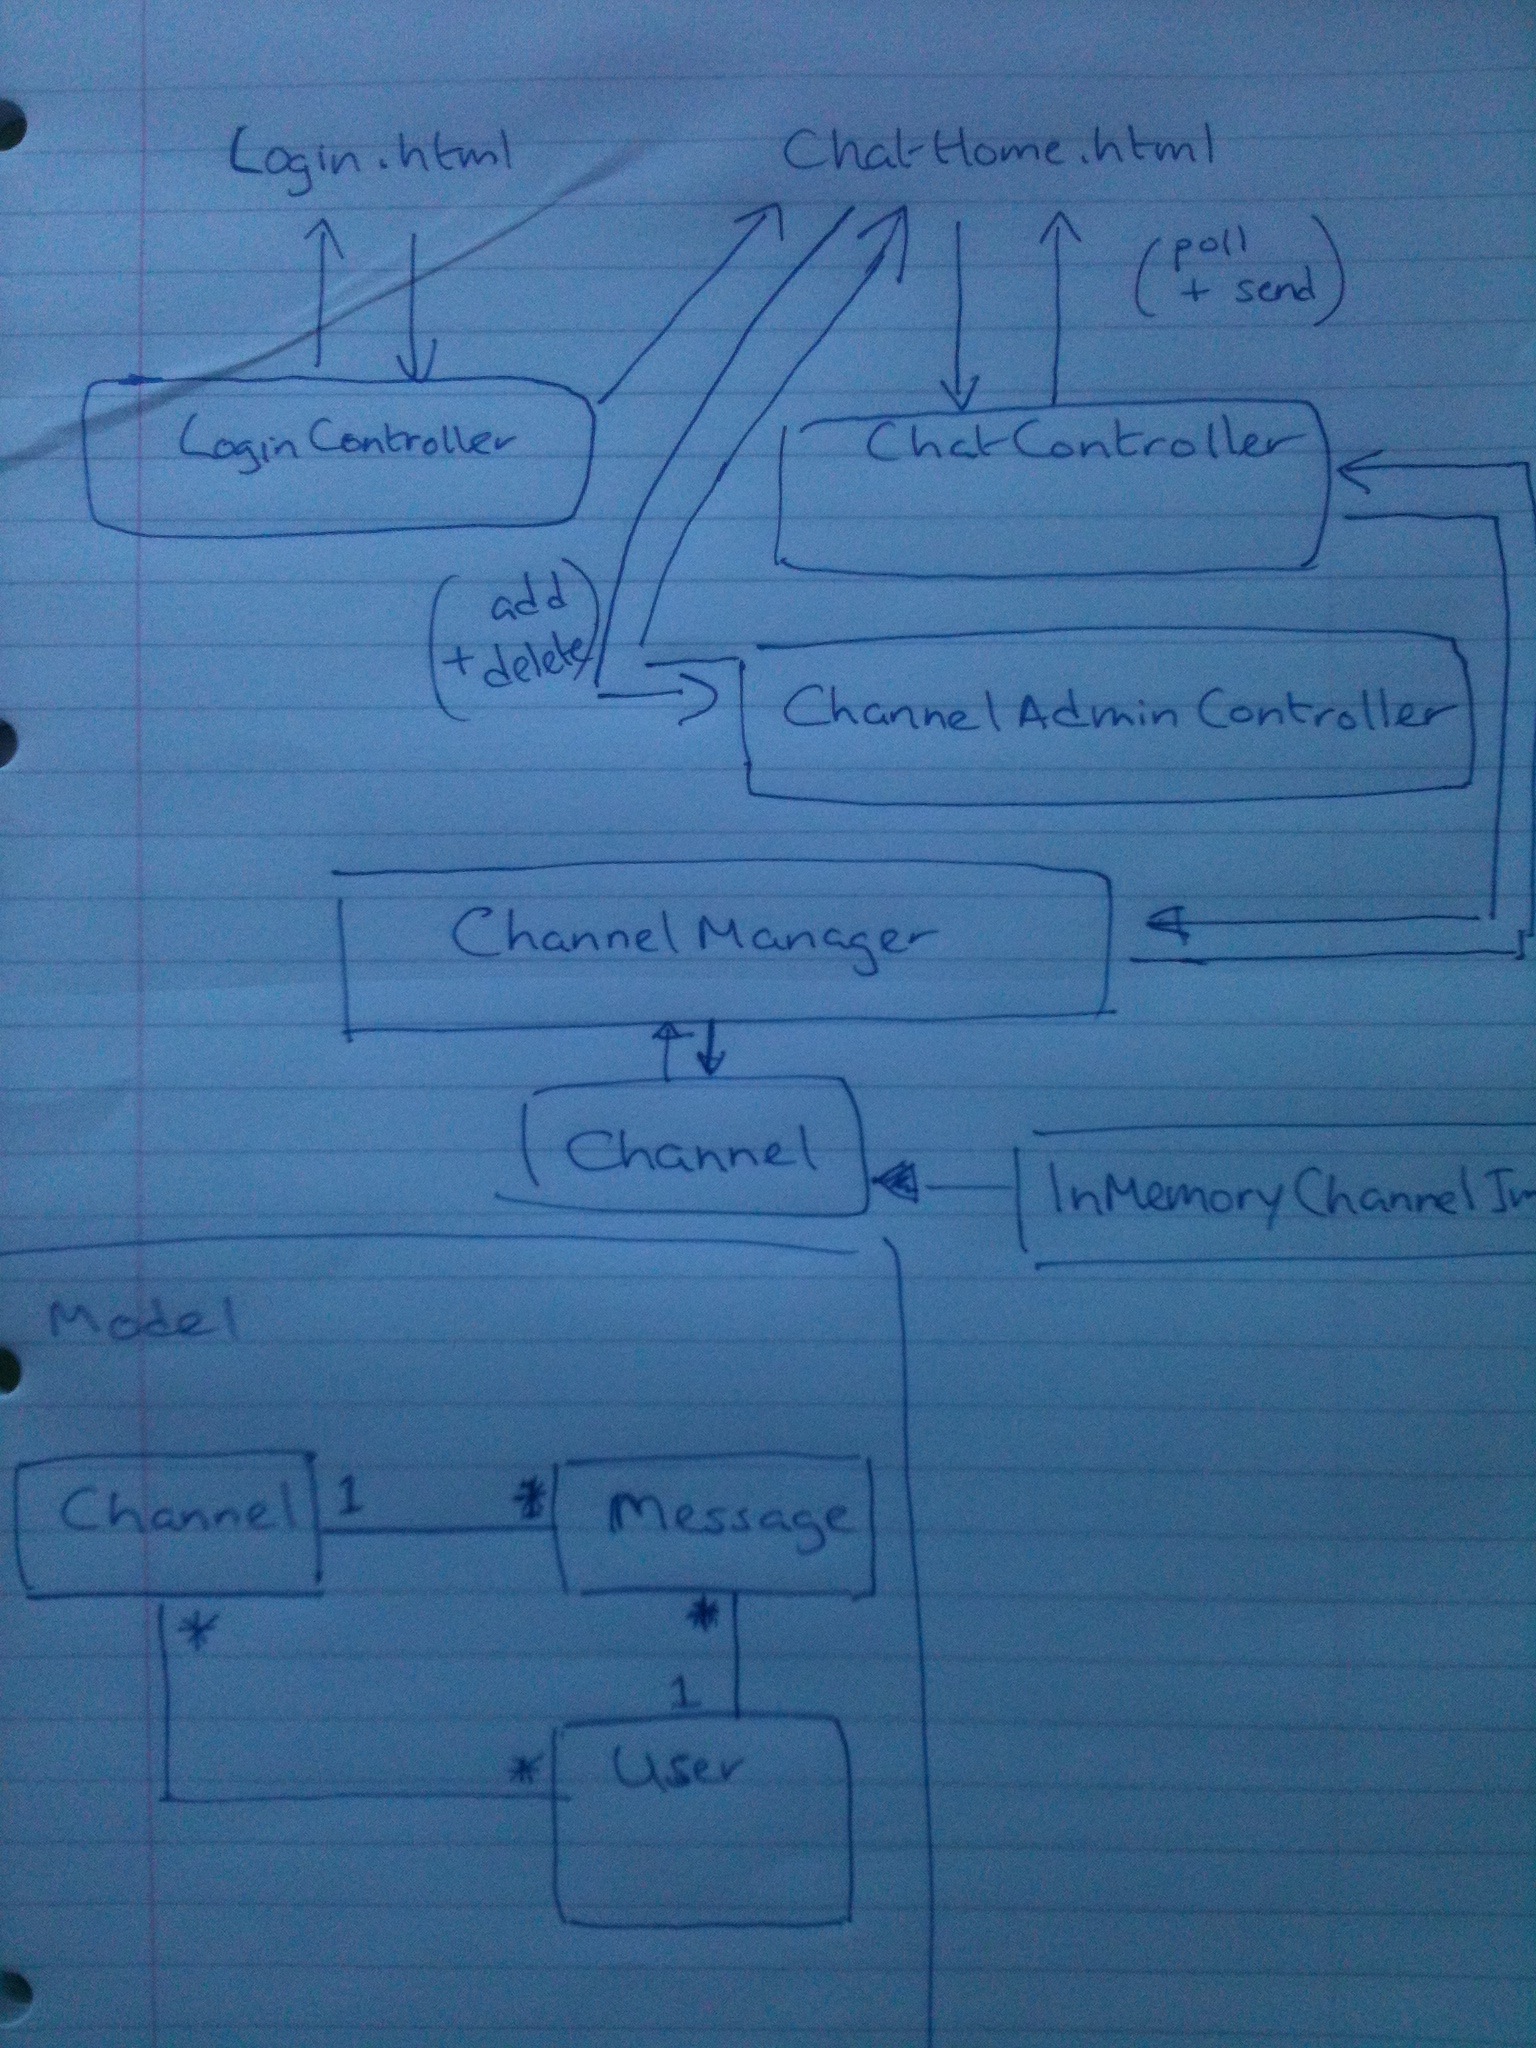 Login.html
ChatHome.html
(poll
+ send)
LoginController
ChatController
(add)
+ delete
Channel Admin Controller
Channel Manager
Channel
InMemoryChannelIm
Model
Channel
1
*
Message
*
*
1
*
User